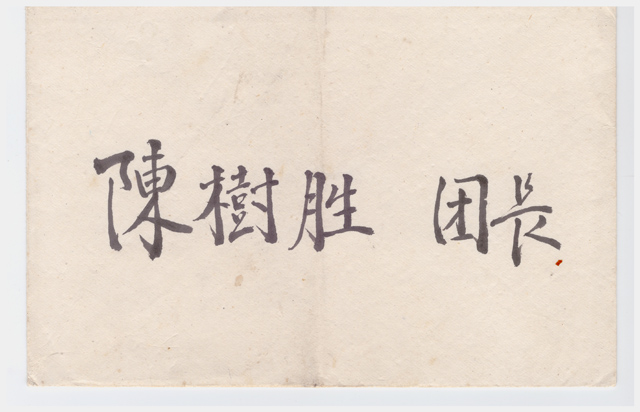 陳樹胜 团長